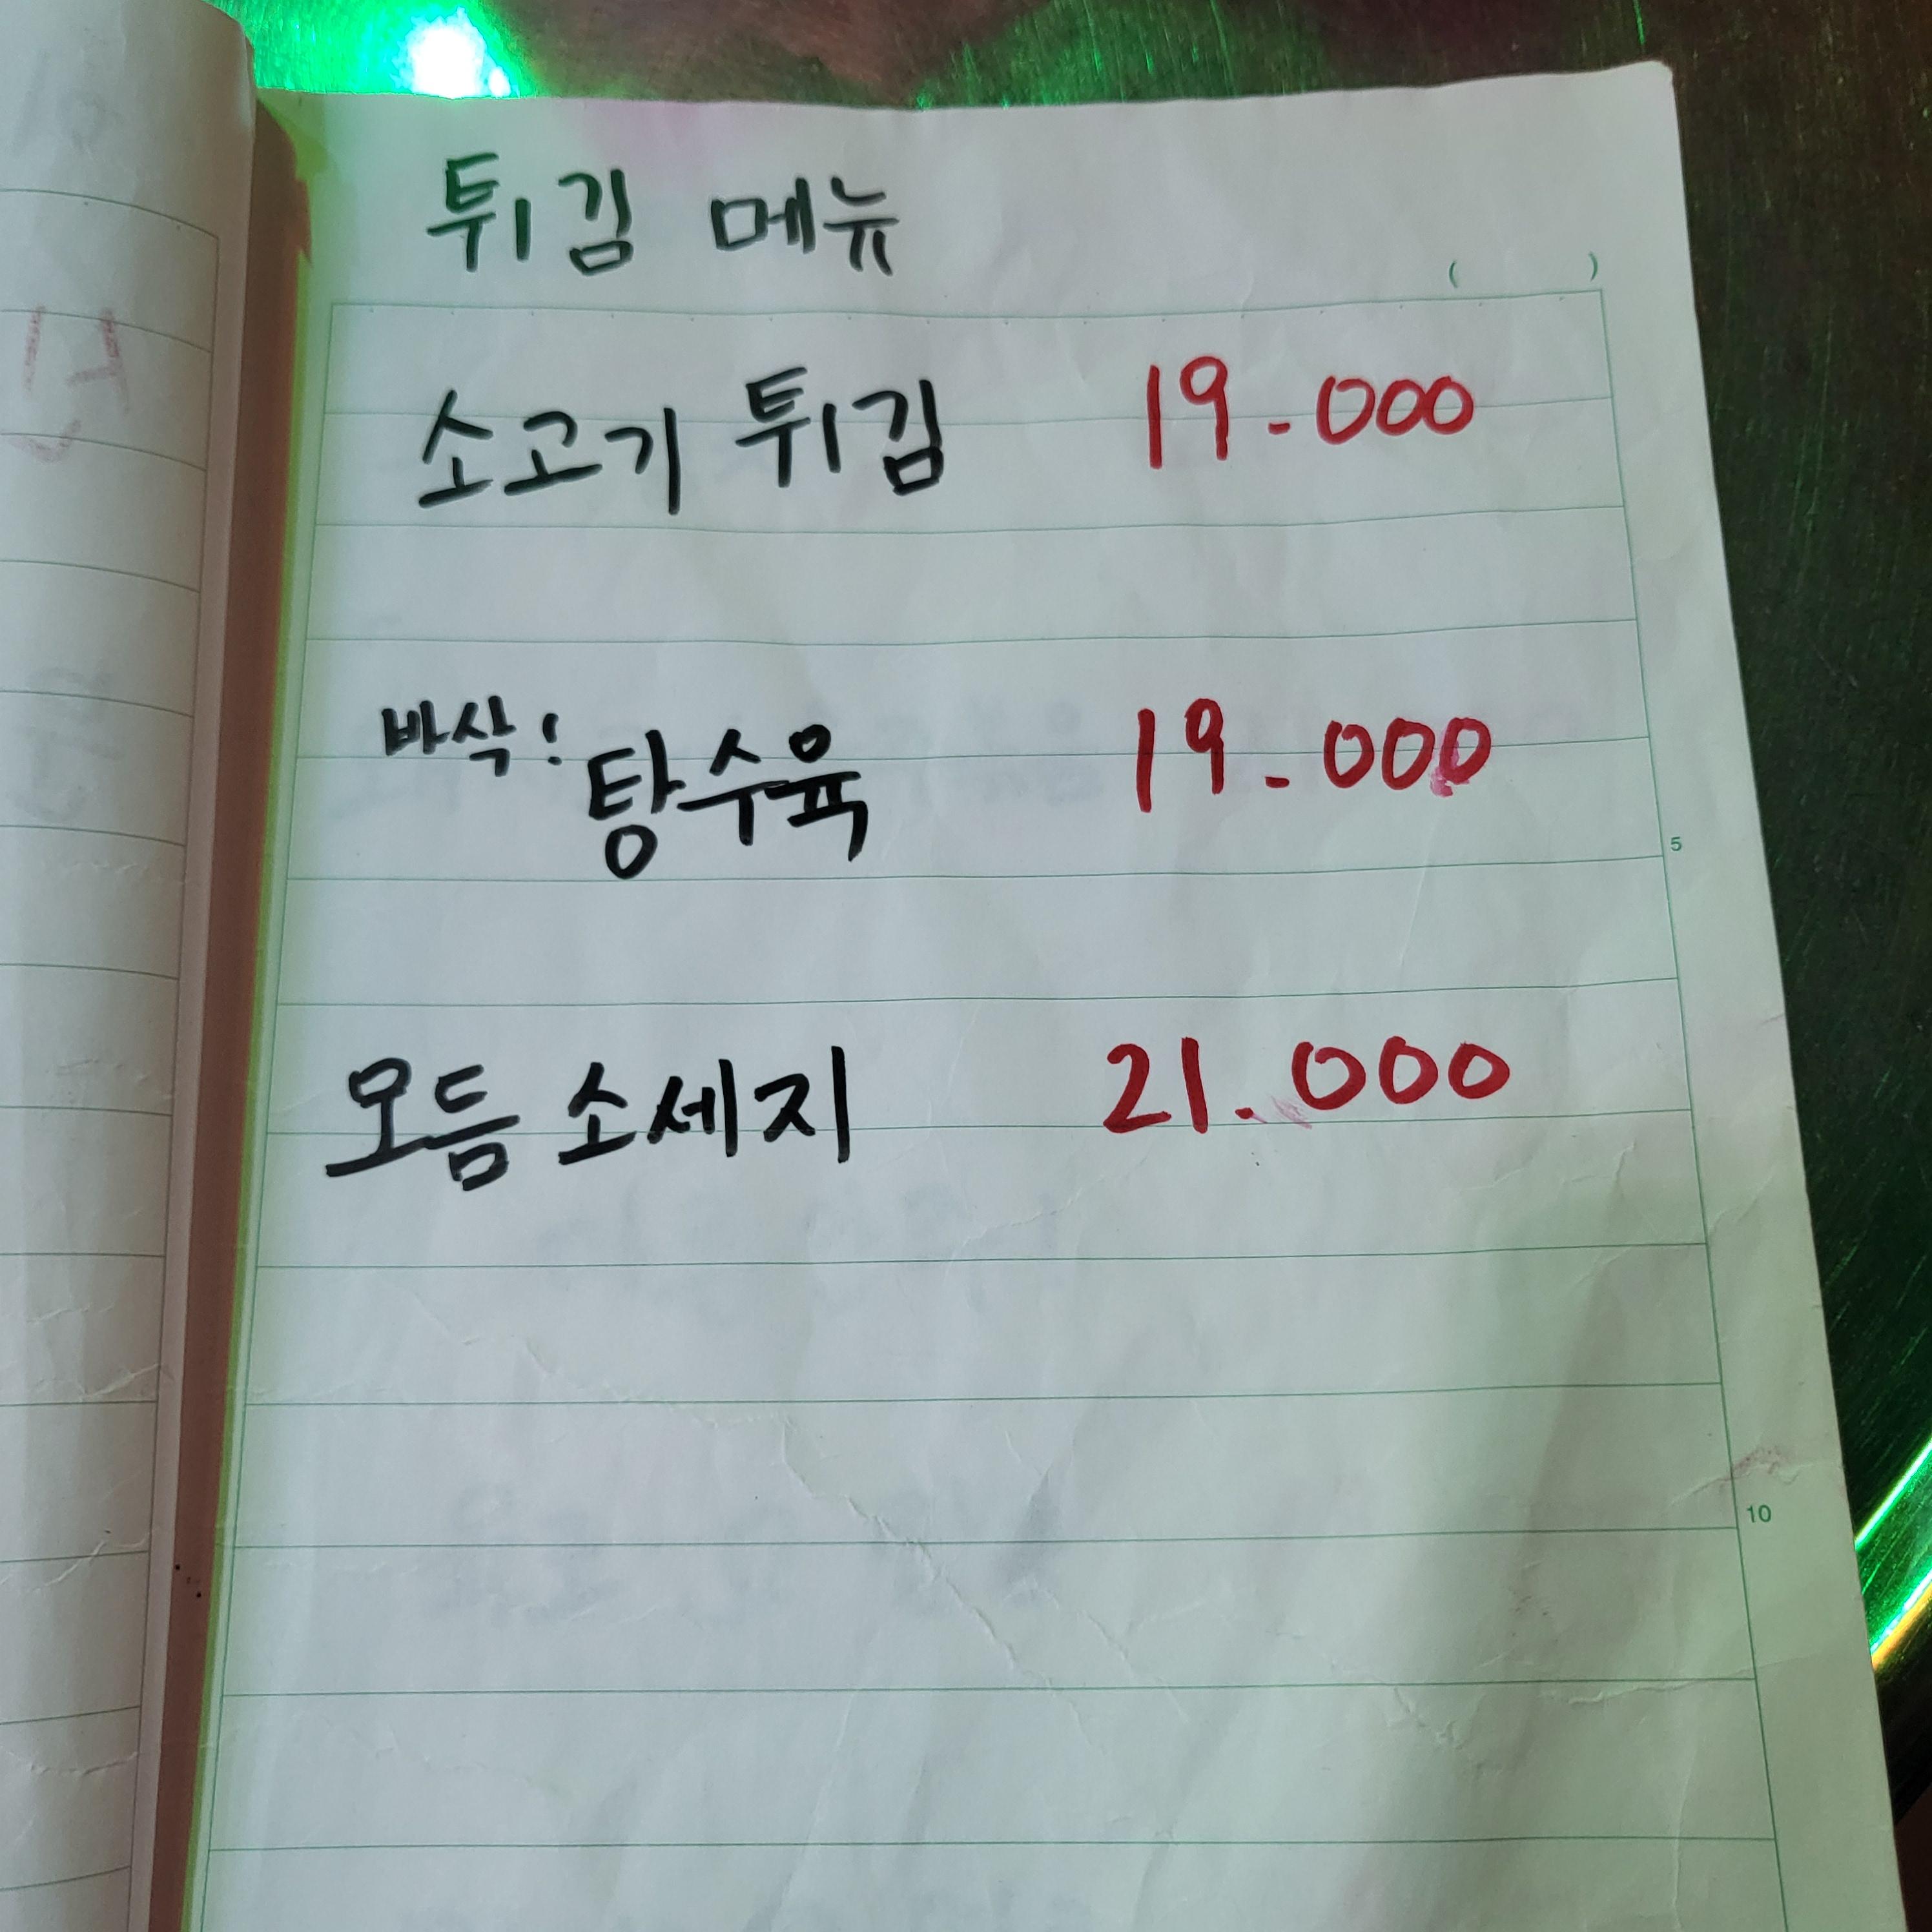 튀김 메뉴
( )
소고기 튀김 19.000
바삭! 탕수육 19.000
5
모듬 소세지 21.000
10